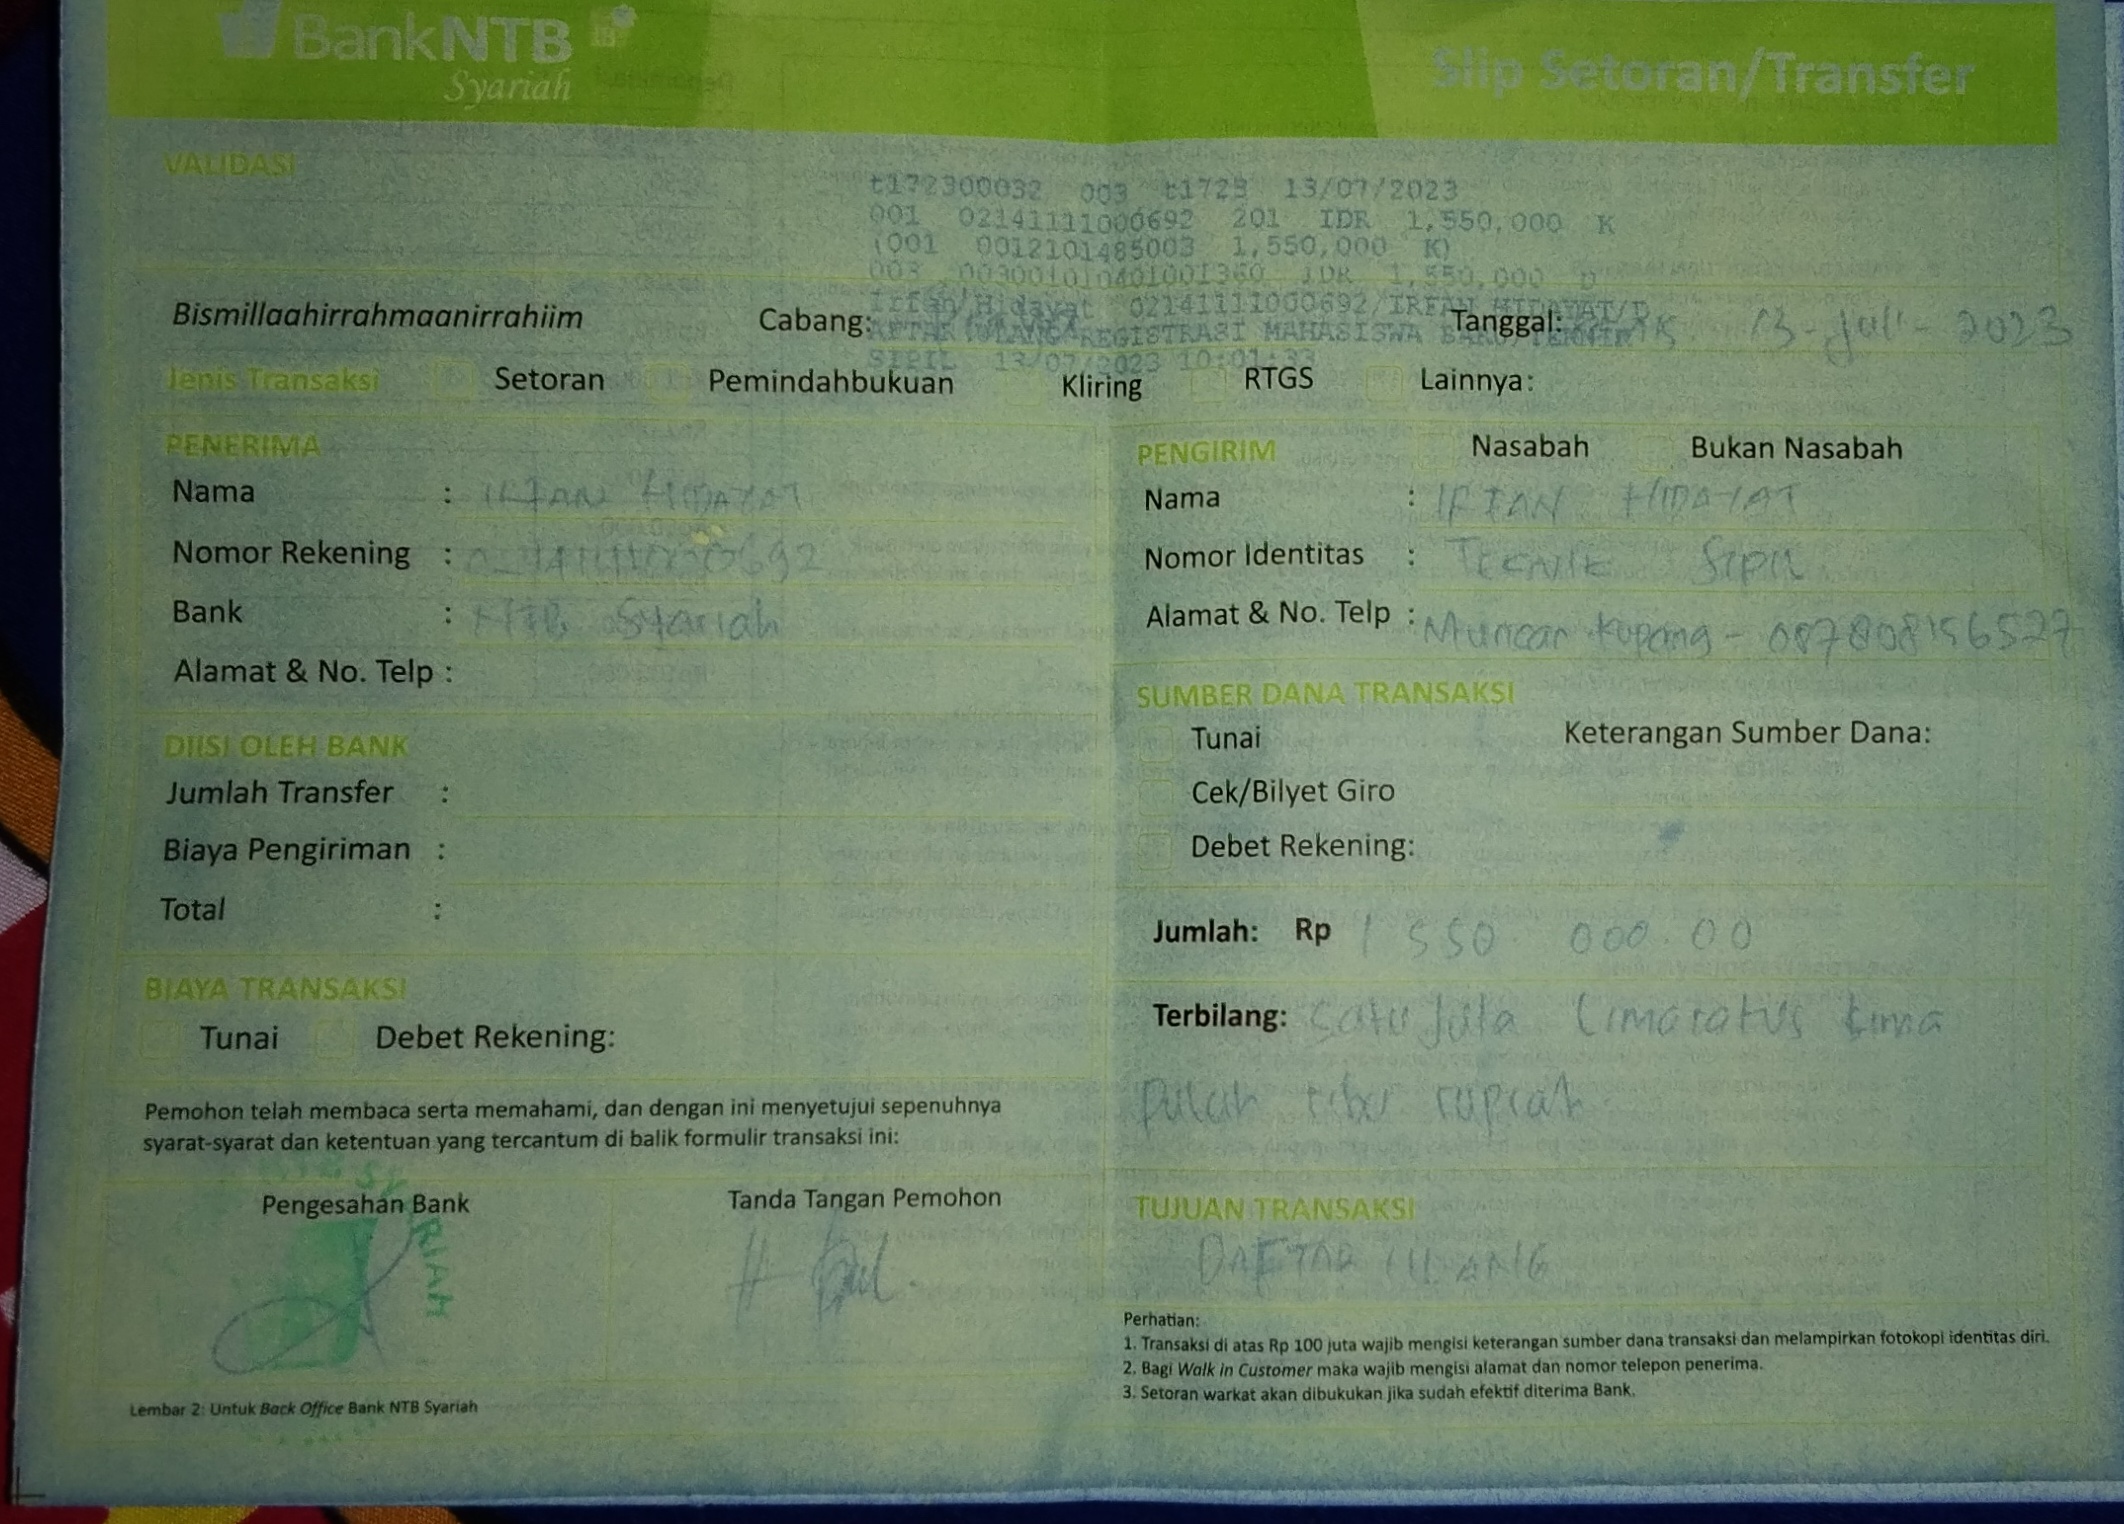 BankNTB
Syariah
Slip Setoran/Transfer
VALIDASI
t172300032 003 t1723 13/07/2023
001 02141111000692 201 IDR 1,550,000 K
(001 0012101485003 1,550,000 K)
003 003001010401001360 IDR 1,550,000 D
Irfan Hidayat 02141111000692/IRFAN HIDAYAT/D
AFTAR ULANG REGISTRASI MAHASISWA BARU/TEKNIK
SIPIL 13/07/2023 10:01:33
Bismillaahirrahmaanirrahiim Cabang: Tanggal: 13-Juli 2023
Jenis Transaksi Setoran Pemindahbukuan Kliring RTGS Lainnya:
PENERIMA
Nama : IRFAN HIDAYAT
Nomor Rekening : 02141111000692
Bank : NTB Syariah
Alamat & No. Telp :
DIISI OLEH BANK
Jumlah Transfer :
Biaya Pengiriman :
Total :
BIAYA TRANSAKSI
Tunai Debet Rekening:
Pemohon telah membaca serta memahami, dan dengan ini menyetujui sepenuhnya
syarat-syarat dan ketentuan yang tercantum di balik formulir transaksi ini:
Pengesahan Bank Tanda Tangan Pemohon
Lembar 2: Untuk Back Office Bank NTB Syariah
PENGIRIM Nasabah Bukan Nasabah
Nama : IRFAN HIDAYAT
Nomor Identitas : TEKNIK SIPIL
Alamat & No. Telp : Muncar Kupang - 087808156527
SUMBER DANA TRANSAKSI
Tunai Keterangan Sumber Dana:
Cek/Bilyet Giro
Debet Rekening:
Jumlah: Rp 1 550. 000.00
Terbilang: Satu Juta Limaratus Lima
puluh ribu rupiah
TUJUAN TRANSAKSI
DAFTAR ULANG
Perhatian:
1. Transaksi di atas Rp 100 juta wajib mengisi keterangan sumber dana transaksi dan melampirkan fotokopi identitas diri.
2. Bagi Walk in Customer maka wajib mengisi alamat dan nomor telepon penerima.
3. Setoran warkat akan dibukukan jika sudah efektif diterima Bank.